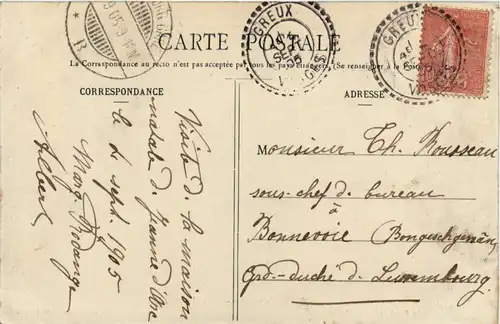 CARTE POSTALE
La Correspondance au recto n'est pas acceptée par tous les pays étrangers. (Se renseigner à la Poste)
CORRESPONDANCE
ADRESSE
Visite de la maison
natale de Jeanne d'Arc
le 4 sept. 1905
Marg. Rodange
Albert
GREUX
VOSGES
GREUX
VOSGES
Monsieur Th. Rousseau
sous-chef de bureau
à
Bonnevoie
Grd-duché de Luxembourg.